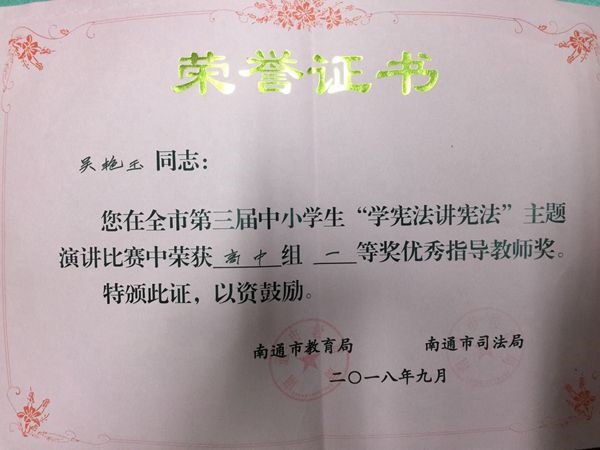 荣誉证书
吴艳玉 同志：
您在全市第三届中小学生“学宪法讲宪法”主题
演讲比赛中荣获 高中 组 一 等奖优秀指导教师奖。
特颁此证，以资鼓励。
南通市教育局 南通市司法局
二〇一八年九月